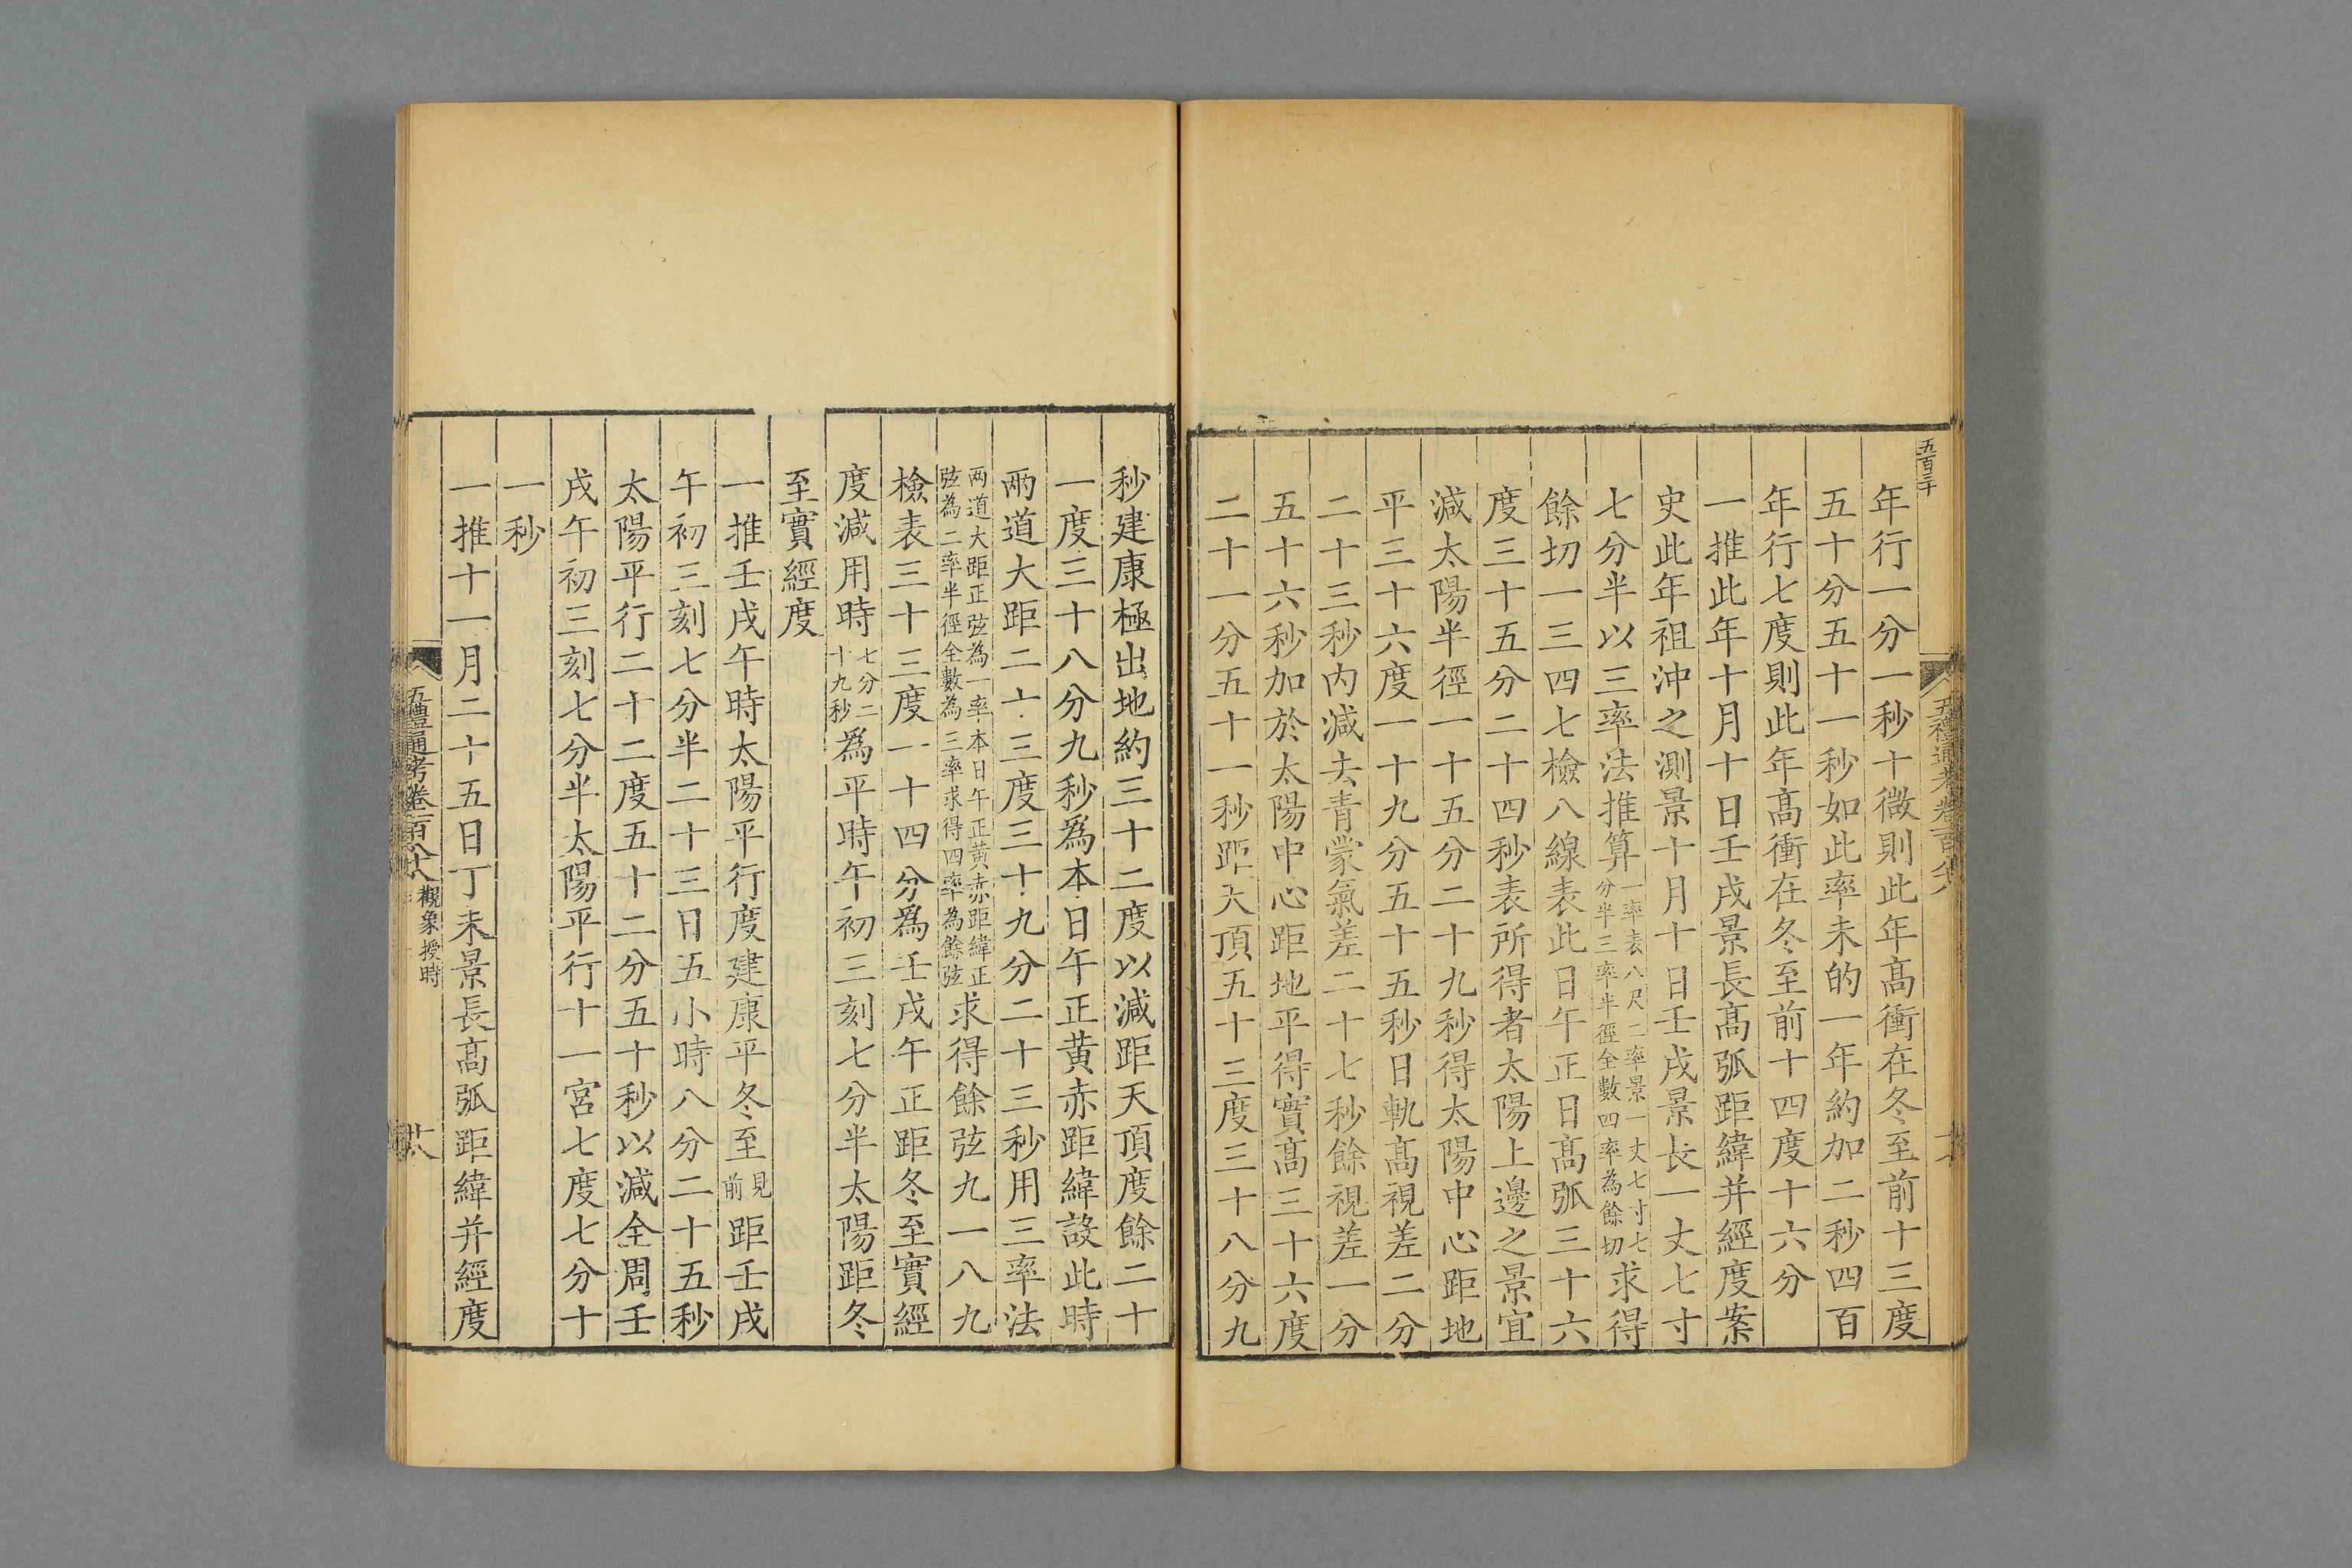 五百三十
五禮通考卷一百八十八
年行一分一秒十微則此年高衝在冬至前十三度
五十分五十一秒如此率未的一年約加二秒四百
年行七度則此年高衝在冬至前十四度十六分
一推此年十月十日壬戌景長高弧距緯并經度案
史此年祖沖之測景十月十日壬戌景長一丈七寸
七分半以三率法推算一率表八尺二率景一丈七寸七分半三率半徑全數四率為餘切求得
餘切一三四七檢八線表此日午正日高弧三十六
度三十五分二十四秒表所得者太陽上邊之景宜
減太陽半徑一十五分二十九秒得太陽中心距地
平三十六度一十九分五十五秒日軌高視差二分
二十三秒內減去青蒙氣差二十七秒餘視差一分
五十六秒加於太陽中心距地平得實高三十六度
二十一分五十一秒距天頂五十三度三十八分九
秒建康極出地約三十二度以減距天頂度餘二十
一度三十八分九秒為本日午正黃赤距緯設此時
兩道大距二十三度三十九分二十三秒用三率法
兩道大距正弦為一率本日午正黃赤距緯正弦為二率半徑全數為三率求得四率為餘弦求得餘弦九一八九
檢表三十三度一十四分為壬戌午正距冬至實經
度減用時七分二十九秒為平時午初三刻七分半太陽距冬
至實經度
一推壬戌午時太陽平行度建康平冬至見前距壬戌
午初三刻七分半二十三日五小時八分二十五秒
太陽平行二十二度五十二分五十秒以減全周壬
戌午初三刻七分半太陽平行十一宮七度七分十
一秒
一推十一月二十五日丁未景長高弧距緯并經度
五禮通考卷一百八十八 觀象授時